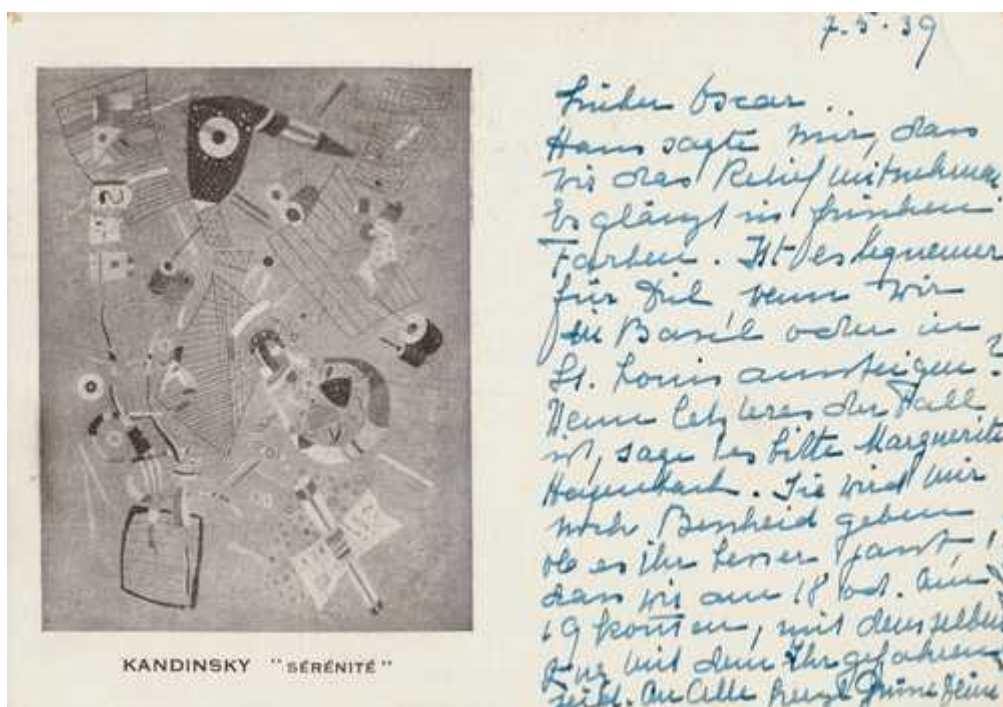 7.5.39
Lieber Oscar.
Hans sagte mir, dass
wir das Relief mitnehmen
Es glänzt in frischen
Farben. Ist es bequemer
für Dich wenn wir
in Basel oder in
St. Louis aussteigen?
Wenn letzteres der Fall
ist, sage es bitte Marguerite
Hagenbach. Sie wird mir
noch Bescheid geben
ob es ihr besser passt,
dass wir am 18 od. am
19 kommen, mit demselben
Zug mit dem Ihr gefahren
seid. An Alle herzl Grüsse
KANDINSKY "SÉRÉNITÉ"